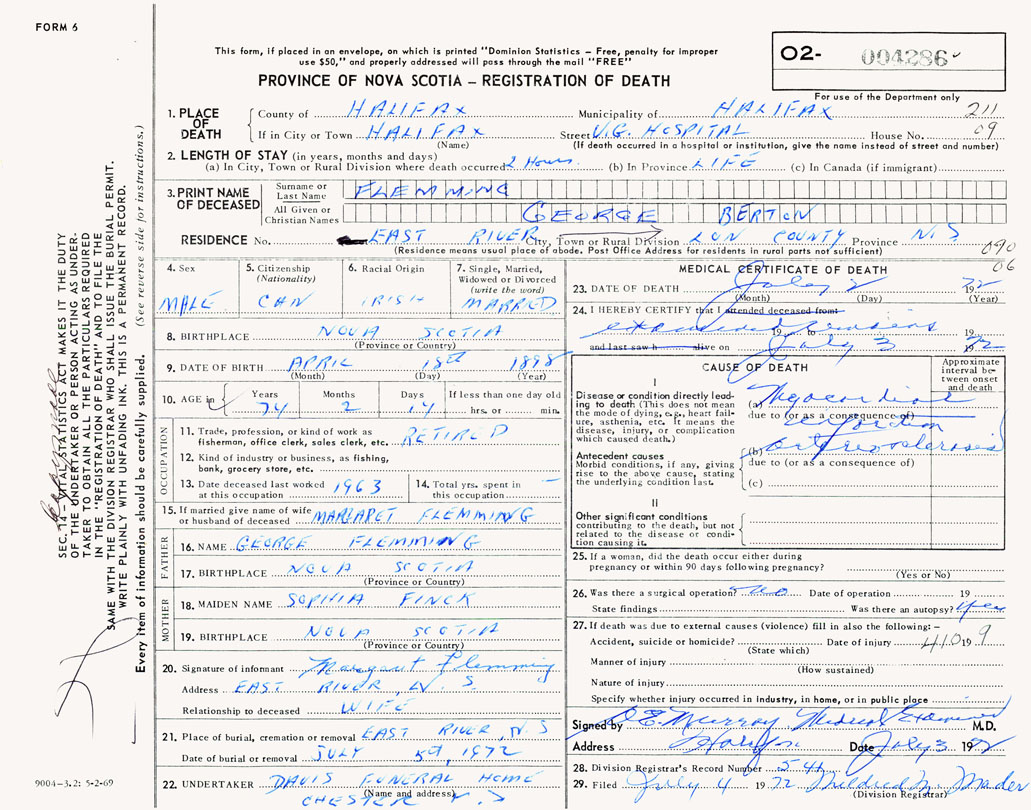 FORM 6
This form, if placed in an envelope, on which is printed "Dominion Statistics – Free, penalty for improper
use $50," and properly addressed will pass through the mail "FREE"
PROVINCE OF NOVA SCOTIA – REGISTRATION OF DEATH
02- 004286
For use of the Department only
1. PLACE OF DEATH
County of HALIFAX Municipality of HALIFAX 211
If in City or Town HALIFAX Street V.G. HOSPITAL House No. 09
(Name) (If death occurred in a hospital or institution, give the name instead of street and number)
2. LENGTH OF STAY (in years, months and days)
(a) In City, Town or Rural Division where death occurred 2 Hours. (b) In Province LIFE (c) In Canada (if immigrant)
3. PRINT NAME OF DECEASED
Surname or Last Name FLEMMING
All Given or Christian Names GEORGE BERTON
RESIDENCE No. EAST RIVER City, Town or Rural Division LUN COUNTY Province N.S
(Residence means usual place of abode. Post Office Address for residents in rural parts not sufficient)
090
06
4. Sex MALE
5. Citizenship (Nationality) CAN
6. Racial Origin IRISH
7. Single, Married, Widowed or Divorced (write the word) MARRIED
8. BIRTHPLACE NOVA SCOTIA
(Province or Country)
9. DATE OF BIRTH APRIL 18th 1898
(Month) (Day) (Year)
10. AGE in Years 74 Months 2 Days 14 If less than one day old hrs. or min.
OCCUPATION
11. Trade, profession or kind of work as
fisherman, office clerk, sales clerk, etc. RETIRED
12. Kind of industry or business, as fishing,
bank, grocery store, etc.
13. Date deceased last worked at this occupation 1963
14. Total yrs. spent in this occupation –
15. If married give name of wife
or husband of deceased MARGARET FLEMMING
FATHER
16. NAME GEORGE FLEMMING
17. BIRTHPLACE NOVA SCOTIA
(Province or Country)
MOTHER
18. MAIDEN NAME SOPHIA FINCK
19. BIRTHPLACE NOVA SCOTIA
(Province or Country)
20. Signature of informant Margaret Flemming
Address EAST RIVER, N.S.
Relationship to deceased WIFE
21. Place of burial, cremation or removal EAST RIVER, N.S
Date of burial or removal JULY 5th, 1972
22. UNDERTAKER DAVIS FUNERAL HOME
(Name and address)
CHESTER N.S
MEDICAL CERTIFICATE OF DEATH
23. DATE OF DEATH July 2 1972
(Month) (Day) (Year)
24. I HEREBY CERTIFY that I attended deceased from:
examined remains 19 to 19
and last saw h alive on July 3 1972
CAUSE OF DEATH
Approximate interval between onset and death
I
Disease or condition directly leading to death (This does not mean the mode of dying, e.g., heart failure, asthenia, etc. It means the disease, injury, or complication which caused death.)
(a) Myocardial
due to (or as a consequence of)
Antecedent causes
Morbid conditions, if any, giving rise to the above cause, stating the underlying condition last.
(b) arteriosclerosis
due to (or as a consequence of)
(c)
II
Other significant conditions
contributing to the death, but not
related to the disease or condition causing it.
25. If a woman, did the death occur either during
pregnancy or within 90 days following pregnancy?
(Yes or No)
26. Was there a surgical operation? no Date of operation 19
State findings Was there an autopsy? yes
27. If death was due to external causes (violence) fill in also the following: –
Accident, suicide or homicide? Date of injury 410 19 9
(State which)
Manner of injury
(How sustained)
Nature of injury
Specify whether injury occurred in industry, in home, or in public place
Signed by R.E. Murray Medical Examiner M.D.
Address Halifax Date July 3 1972
28. Division Registrar's Record Number 541
29. Filed July 4 1972 Mildred M. Mader
(Division Registrar)
SEC. 14 – VITAL STATISTICS ACT MAKES IT THE DUTY
OF THE UNDERTAKER OR PERSON ACTING AS UNDERTAKER
TO OBTAIN ALL THE PARTICULARS REQUIRED
IN THE "REGISTRATION OF DEATH" AND TO FILE THE
SAME WITH THE DIVISION REGISTRAR WHO SHALL ISSUE THE BURIAL PERMIT.
WRITE PLAINLY WITH UNFADING INK. THIS IS A PERMANENT RECORD.
Every item of information should be carefully supplied. (See reverse side for instructions.)
9004-3.2: 5-2-69